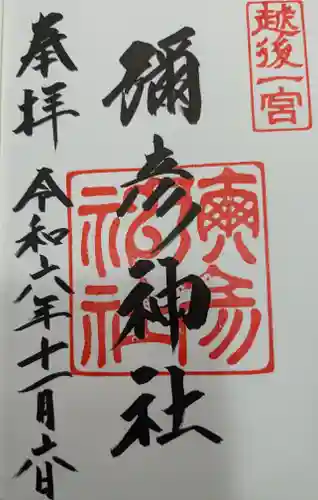 越後一宮
彌彦神社
奉拝
令和六年十一月六日
彌彦神社